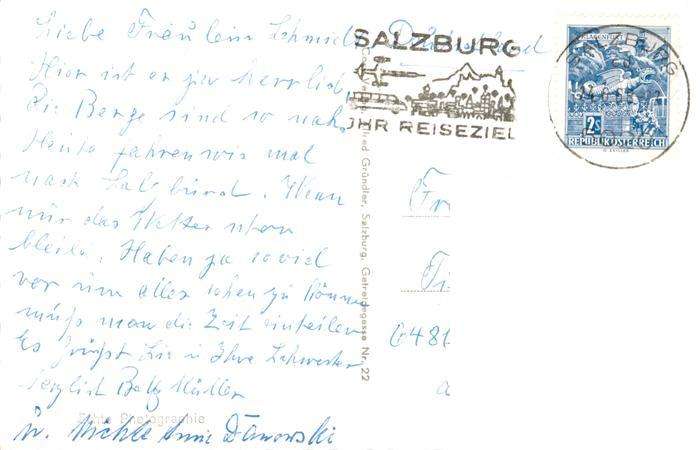 Liebe Fräulein Schmidt
Hier ist es gar herrlich
Die Berge sind so nah.
Heute fahren wir mal
nach Salzburg. Wenn
nur das Wetter
bleibt. Haben ja so viel
vor um alles sehen zu können
muß man die Zeit einteilen
Es grüßt Sie u Ihre Schwester
herzlich Betty Müller
Echte Photographie
u. Danowski
Deutschland
SALZBURG
IHR REISEZIEL
SALZBURG
KLAGENFURT
2S
REPUBLIK ÖSTERREICH
Gründler, Salzburg, Getreidegasse Nr. 22